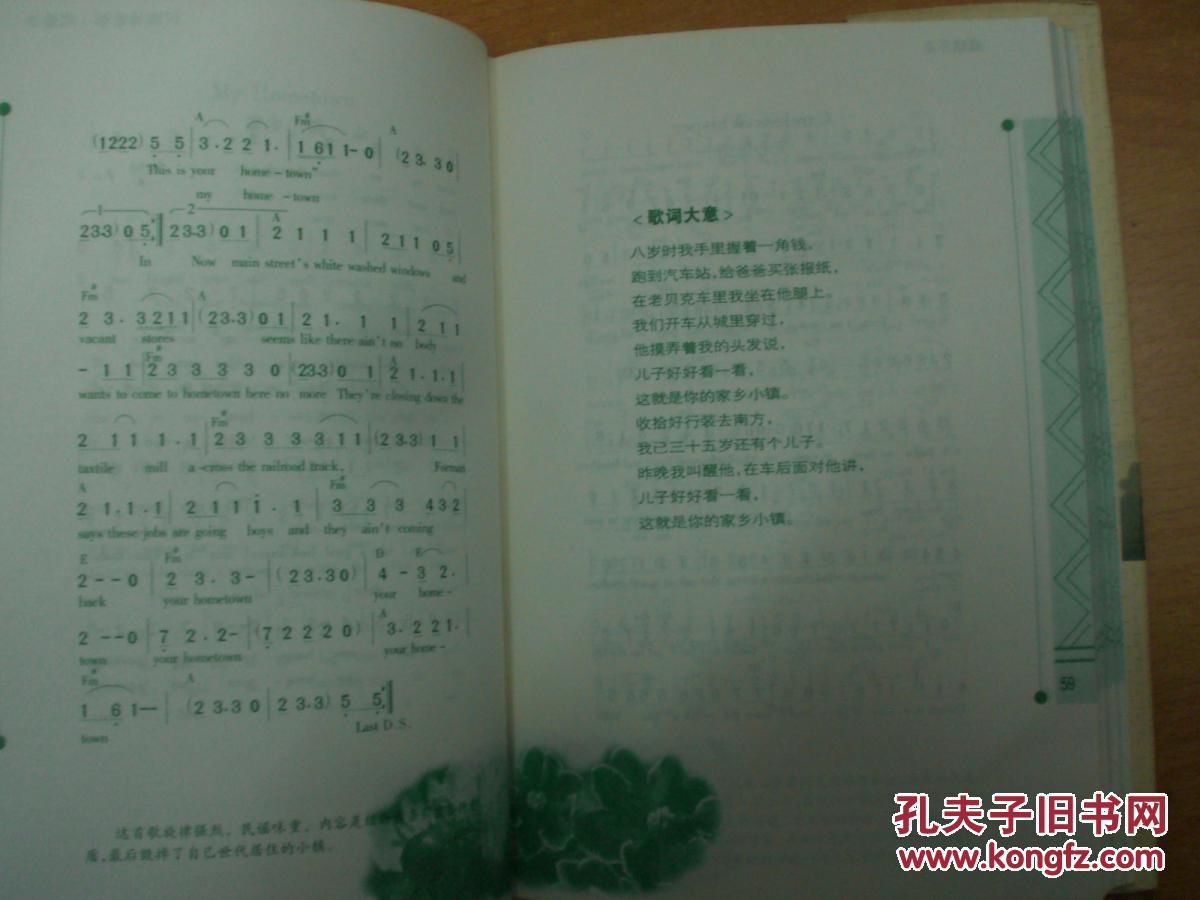 A Fm# A
(1222) 5 5 | 3.2 2 1. | 1 6 1 1-0 | (2 3.3 0 |
This is your home-town"
my home-town
1 2 A
23.3) 0 5 :‖ 23.3) 0 1 | 2 1 1 1 | 2 1 1 0 5 |
In Now main street's white washed windows and
Fm# A
2 3. 3 2 1 1 | (23.3) 0 1 | 2 1. 1 1 | 2 1 1
vacant stores seems like there ain't no body
Fm# A
- 1 1 | 2 3 3 3 3 0 | (23.3) 0 1 | 2 1.1.1 |
wants to come to hometown here no more They're closing down the
Fm#
2 1 1 1.1 | 2 3 3 3 3 1 1 | (2 3.3) 1 1 |
taxtile mill a-cross the railroad track, Foman
A Fm#
2 1.1.1 | 2 1 1 1. 1 | 3 3 3 4 3 2 |
says these jobs are going boys and they ain't coming
E Fm# D E
2--0 | 2 3.3- | (2 3.3 0) | 4 - 3 2. |
back your hometown your home-
A
2 --0 | 7 2.2- | (7 2 2 2 0) | 3. 2 2 1. |
town your hometown your home-
Fm# A
1 6 1-- | (2 3.3 0 | 2 3.3) 5 5 :‖
town Last D.S.
这首歌旋律强烈，民谣味重，内容是
盾，最后毁掉了自己世代居住的小镇。
〈歌词大意〉
八岁时我手里握着一角钱，
跑到汽车站，给爸爸买张报纸，
在老贝克车里我坐在他腿上，
我们开车从城里穿过，
他摸弄着我的头发说，
儿子好好看一看，
这就是你的家乡小镇。
收拾好行装去南方，
我已三十五岁还有个儿子。
昨晚我叫醒他，在车后面对他讲，
儿子好好看一看，
这就是你的家乡小镇。
59
孔夫子旧书网
www.kongfz.com